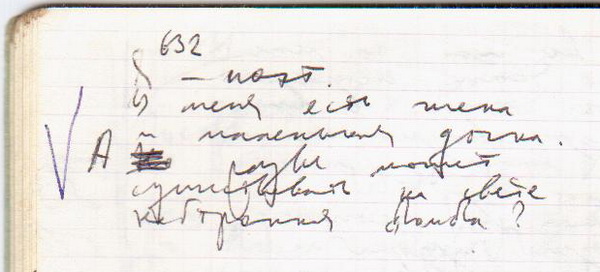 632
Я — поэт.
У меня есть жена
и маленькая дочка.
А разве может
существовать на свете
нейтронная бомба?